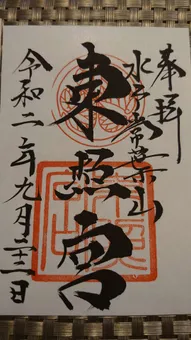 奉拝
水戸 常葉山
東照宮
令和二年九月二十二日